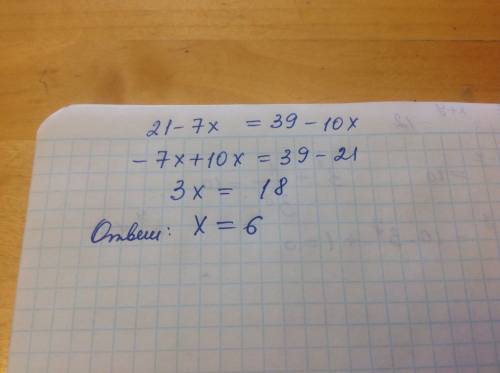 21 - 7x = 39 - 10x
- 7x + 10x = 39 - 21
3x = 18
Ответ: x = 6